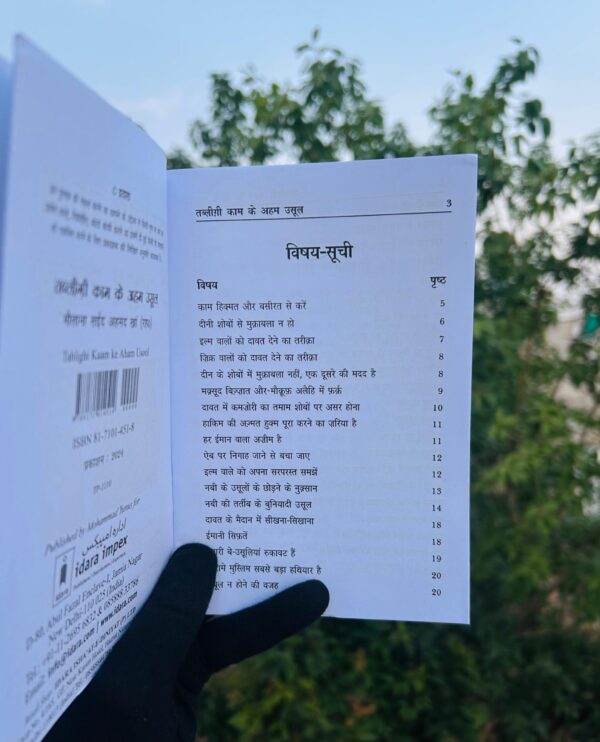 तब्लीग़ी काम के अहम उसूल
मौलाना सईद अहमद खां (रह०)
Tablighi Kaam ke Aham Usool
ISBN 81-7101-451-8
प्रकाशन : 2024
TP-1110
Published by Mohammad Yunus for
idara impex
D-80, Abul Fazal Enclave-I, Jamia Nagar
New Delhi-110 025 (India)
Tel.: +91-11-2695 6832 & 085888 33786
तब्लीग़ी काम के अहम उसूल 3
विषय-सूची
विषय पृष्ठ
काम हिक्मत और बसीरत से करें 5
दीनी शोबों से मुक़ाबला न हो 6
इल्म वालों को दावत देने का तरीक़ा 7
ज़िक्र वालों को दावत देने का तरीक़ा 8
दीन के शोबों में मुक़ाबला नहीं, एक दूसरे की मदद है 8
मक़्सूद बिज़्ज़ात और-मौक़ूफ़ अलैहि में फ़र्क़ 9
दावत में कमज़ोरी का तमाम शोबों पर असर होना 10
हाकिम की अज़्मत हुक्म पूरा करने का ज़रिया है 11
हर ईमान वाला अज़ीम है 11
ऐब पर निगाह जाने से बचा जाए 12
इल्म वाले को अपना सरपरस्त समझें 12
नबी के उसूलों के छोड़ने के नुक़्सान 13
नबी की तर्तीब के बुनियादी उसूल 14
दावत के मैदान में सीखना-सिखाना 18
ईमानी सिफ़तें 18
री बे-उसूलियां रुकावट हैं 19
मुस्लिम सबसे बड़ा हथियार है 20
न होने की वजह 20